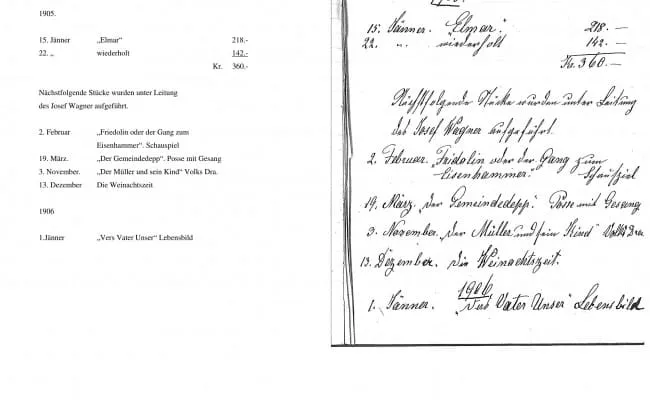 1905.
15. Jänner „Elmar“ 218.-
22. „ wiederholt 142.-
Kr. 360.-
Nächstfolgende Stücke wurden unter Leitung
des Josef Wagner aufgeführt.
2. Februar „Fridolin oder der Gang zum
Eisenhammer“. Schauspiel
19. März. „Der Gemeindedepp“. Posse mit Gesang
3. November. „Der Müller und sein Kind“ Volks Dra.
13. Dezember Die Weinachtszeit.
1906
1.Jänner „Vers Vater Unser“ Lebensbild
15. Jänner. „Elmar“. 218.—
22. „. wiederholt 142.—
Kr. 360.—
Nächstfolgende Stücke wurden unter Leitung
des Josef Wagner aufgeführt.
2. Februar. „Fridolin oder der Gang zum
Eisenhammer.“ Schauspiel
19. März. „Der Gemeindedepp.“ Posse mit Gesang
3. November. „Der Müller und sein Kind“ Volks Dra
13. Dezember. Die Weinachtszeit.
1906
1. Jänner. „Vers Vater Unser“ Lebensbild